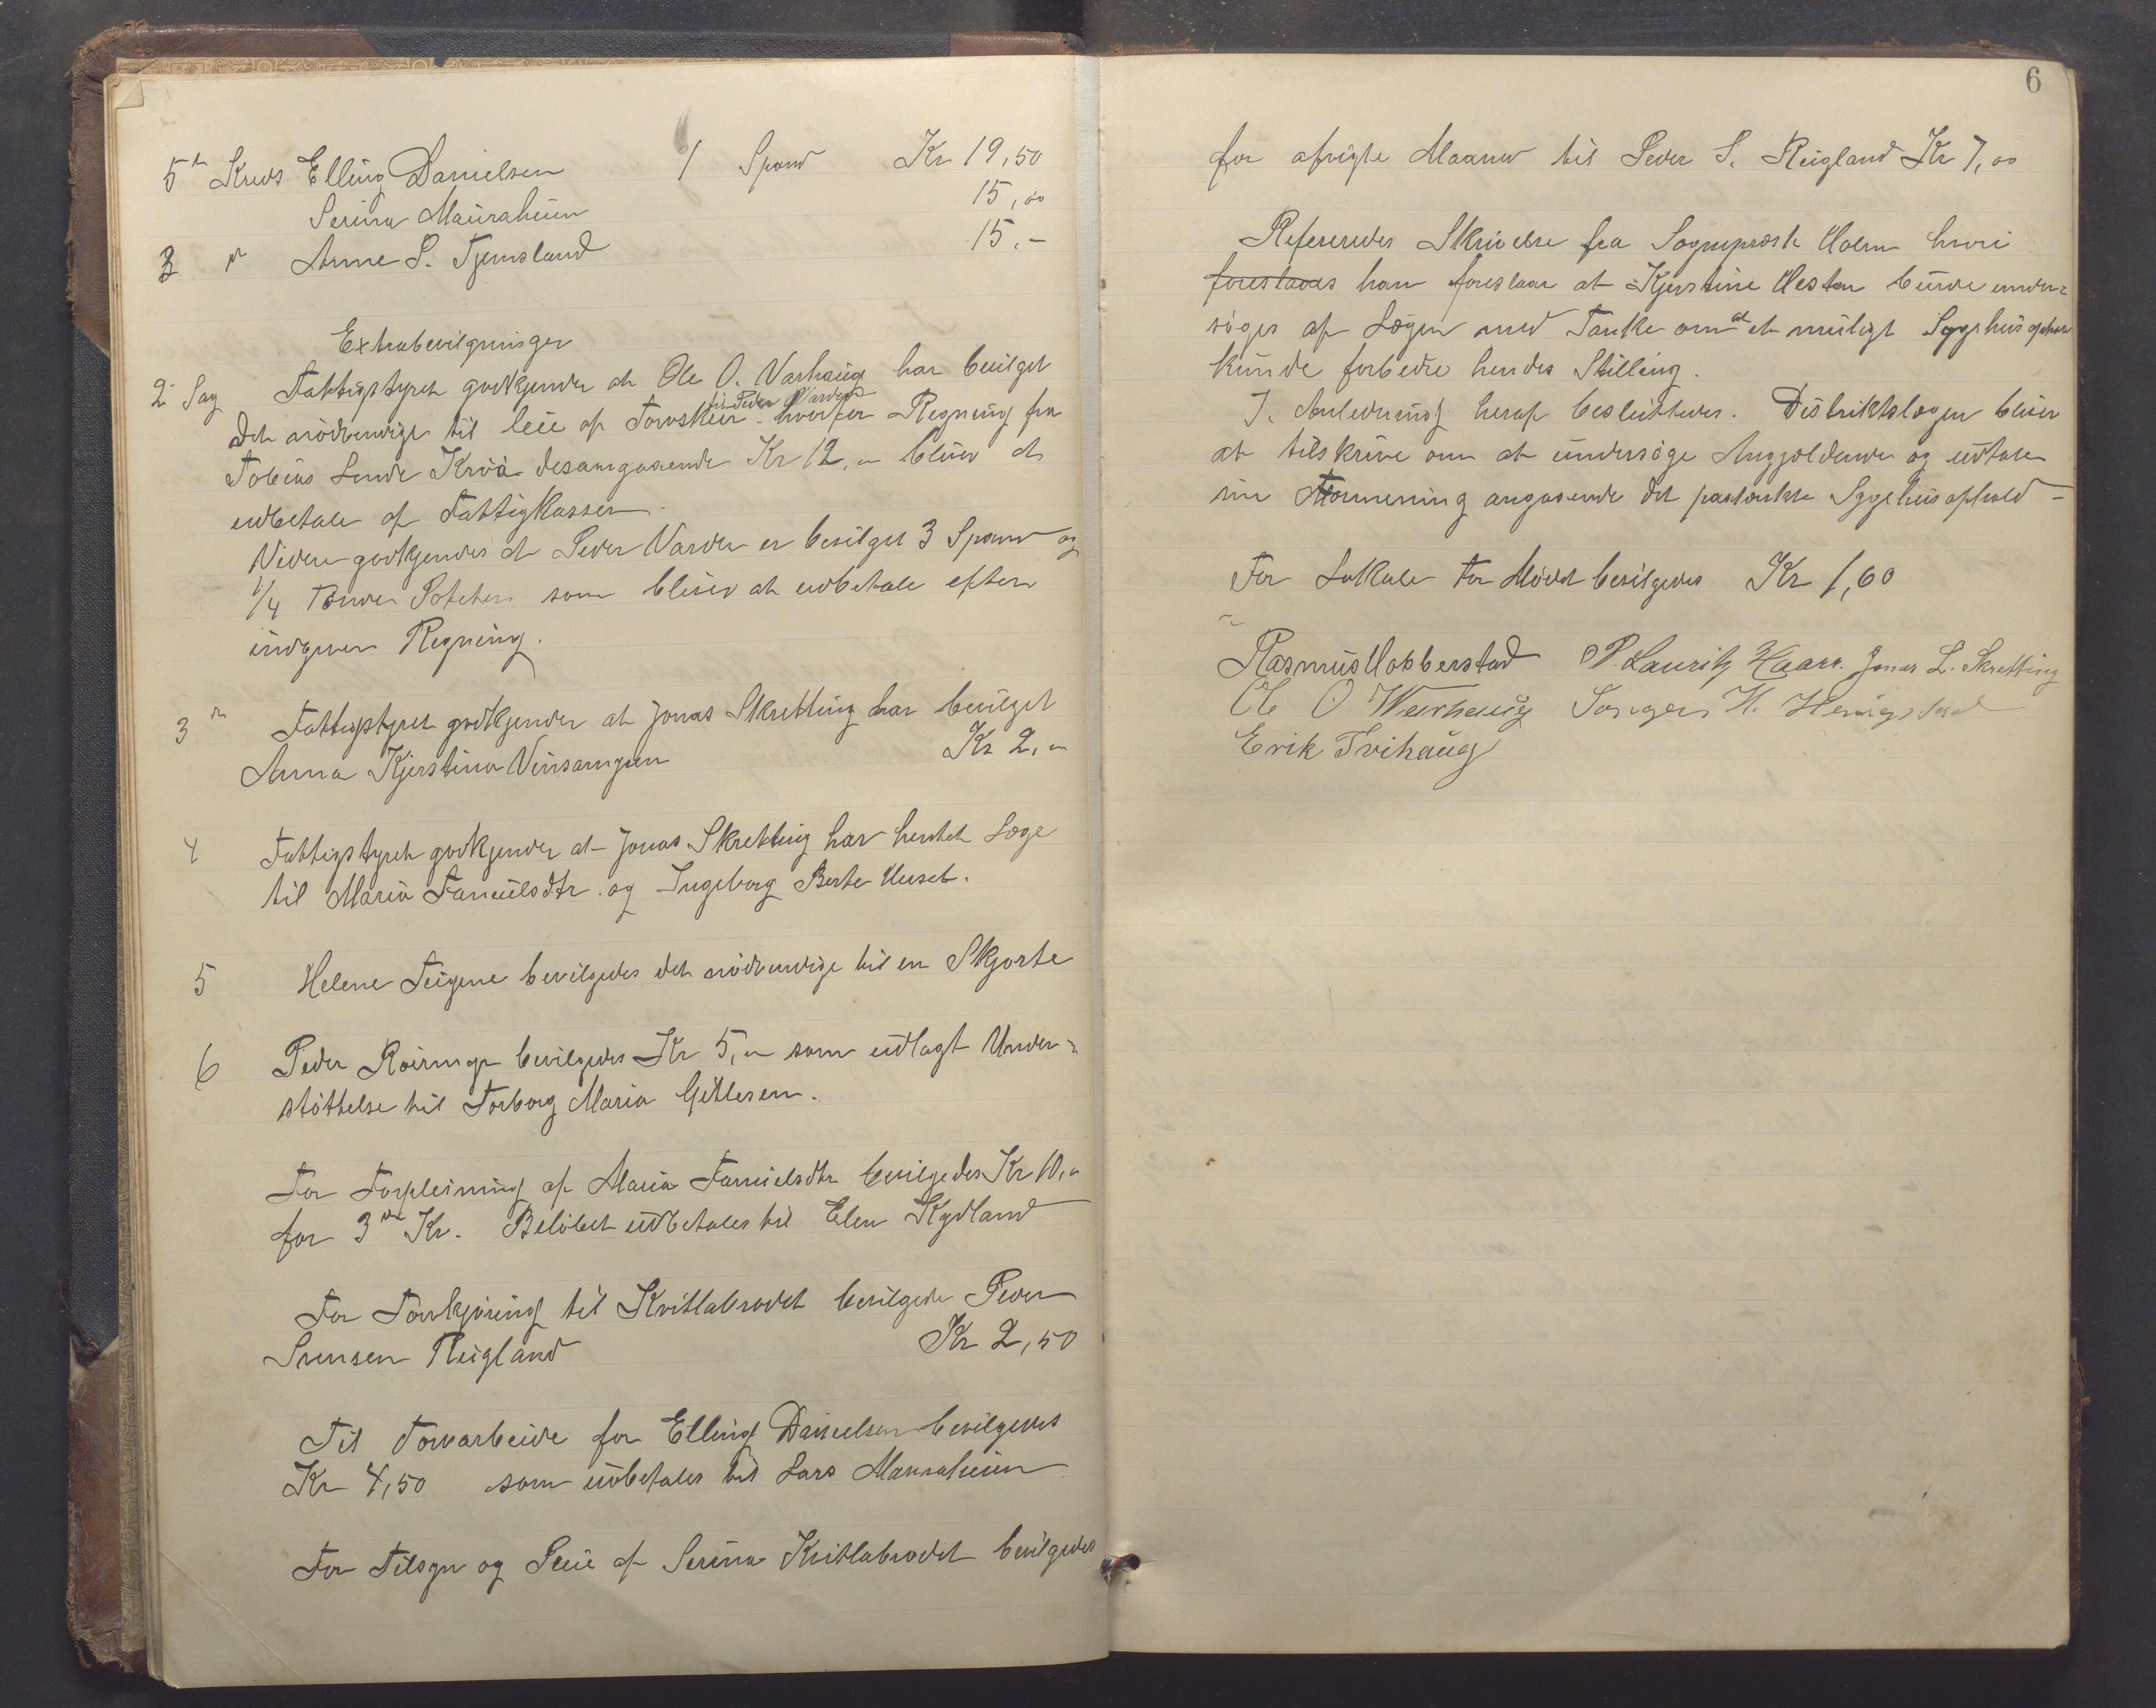 5te Kreds Elling Danielsen 1 Spand Kr 19,50
Serina Mauraheien 15,00
3 " Anne S. Tjemsland 15.-
Extrabevilgninger
2 Sag Fattigstyret godkjender at Ole O. Varhaug har bevilget
til Peder Varden
det nödvendige til leie af Torvskur - hvorfor Regning fra
Tobias Lende Kroå desangaaende Kr 12,00 bliver at
udbetale af Fattigkassen.
Videre godkjendes at Peder Varden er bevilget 3 Spand og
1/4 Tönde Poteter som bliver at udbetale efter
indgiven Regning.
3 Fattigstyret godkjender at Jonas Skretting har bevilget
Anna Kjerstina Kr 2,00
4 Fattigstyret godkjender at Jonas Skretting har hentet Læge
til Maria Danielsdtr. og Ingeborg Berte
5 Helene Teigene bevilgedes det nödvendige til en Skjorte
6 Peder bevilgedes Kr 5,00 som udlagt Under=
stöttelse til Torborg Maria Gitlesen.
For Forpleining af Maria Danielsdtr bevilgedes Kr 10,00
for 3die Kv. Belöbet udbetales til Elen Kydland
For Torvkjöring til Kvitlabrodet bevilgedes Peder
Svensen Reigland Kr 2,50
Til Torvarbeide for Elling Danielsen bevilgedes
Kr 4,50 som udbetales til Lars Mauraheien
For Tilsyn og Pleie af Serina Kvitlabrodet bevilgedes
6
for afvigte Maaned til Peder S. Reigland Kr 7,00
Refereredes Skrivelse fra Sognepræst Holm hvori
foreslaaes han foreslaar at Kjerstine burde under=
söges af Lægen med Tanke om at et muligt Sygehusophold
kunde forbedre hendes Stilling.
I Anledning heraf besluttedes. Distriktslægen bliver
at tilskrive om at undersöge Angjeldende og udtale
sin Formening angaaende det paatænkte Sygehusophold -
For Lokale for Mödet bevilgedes Kr 1,60
Rasmus Hobberstad P. Lauritz Haarr. Jonas L. Skretting
Ole O Warhaug H.
Erik Tvihaug